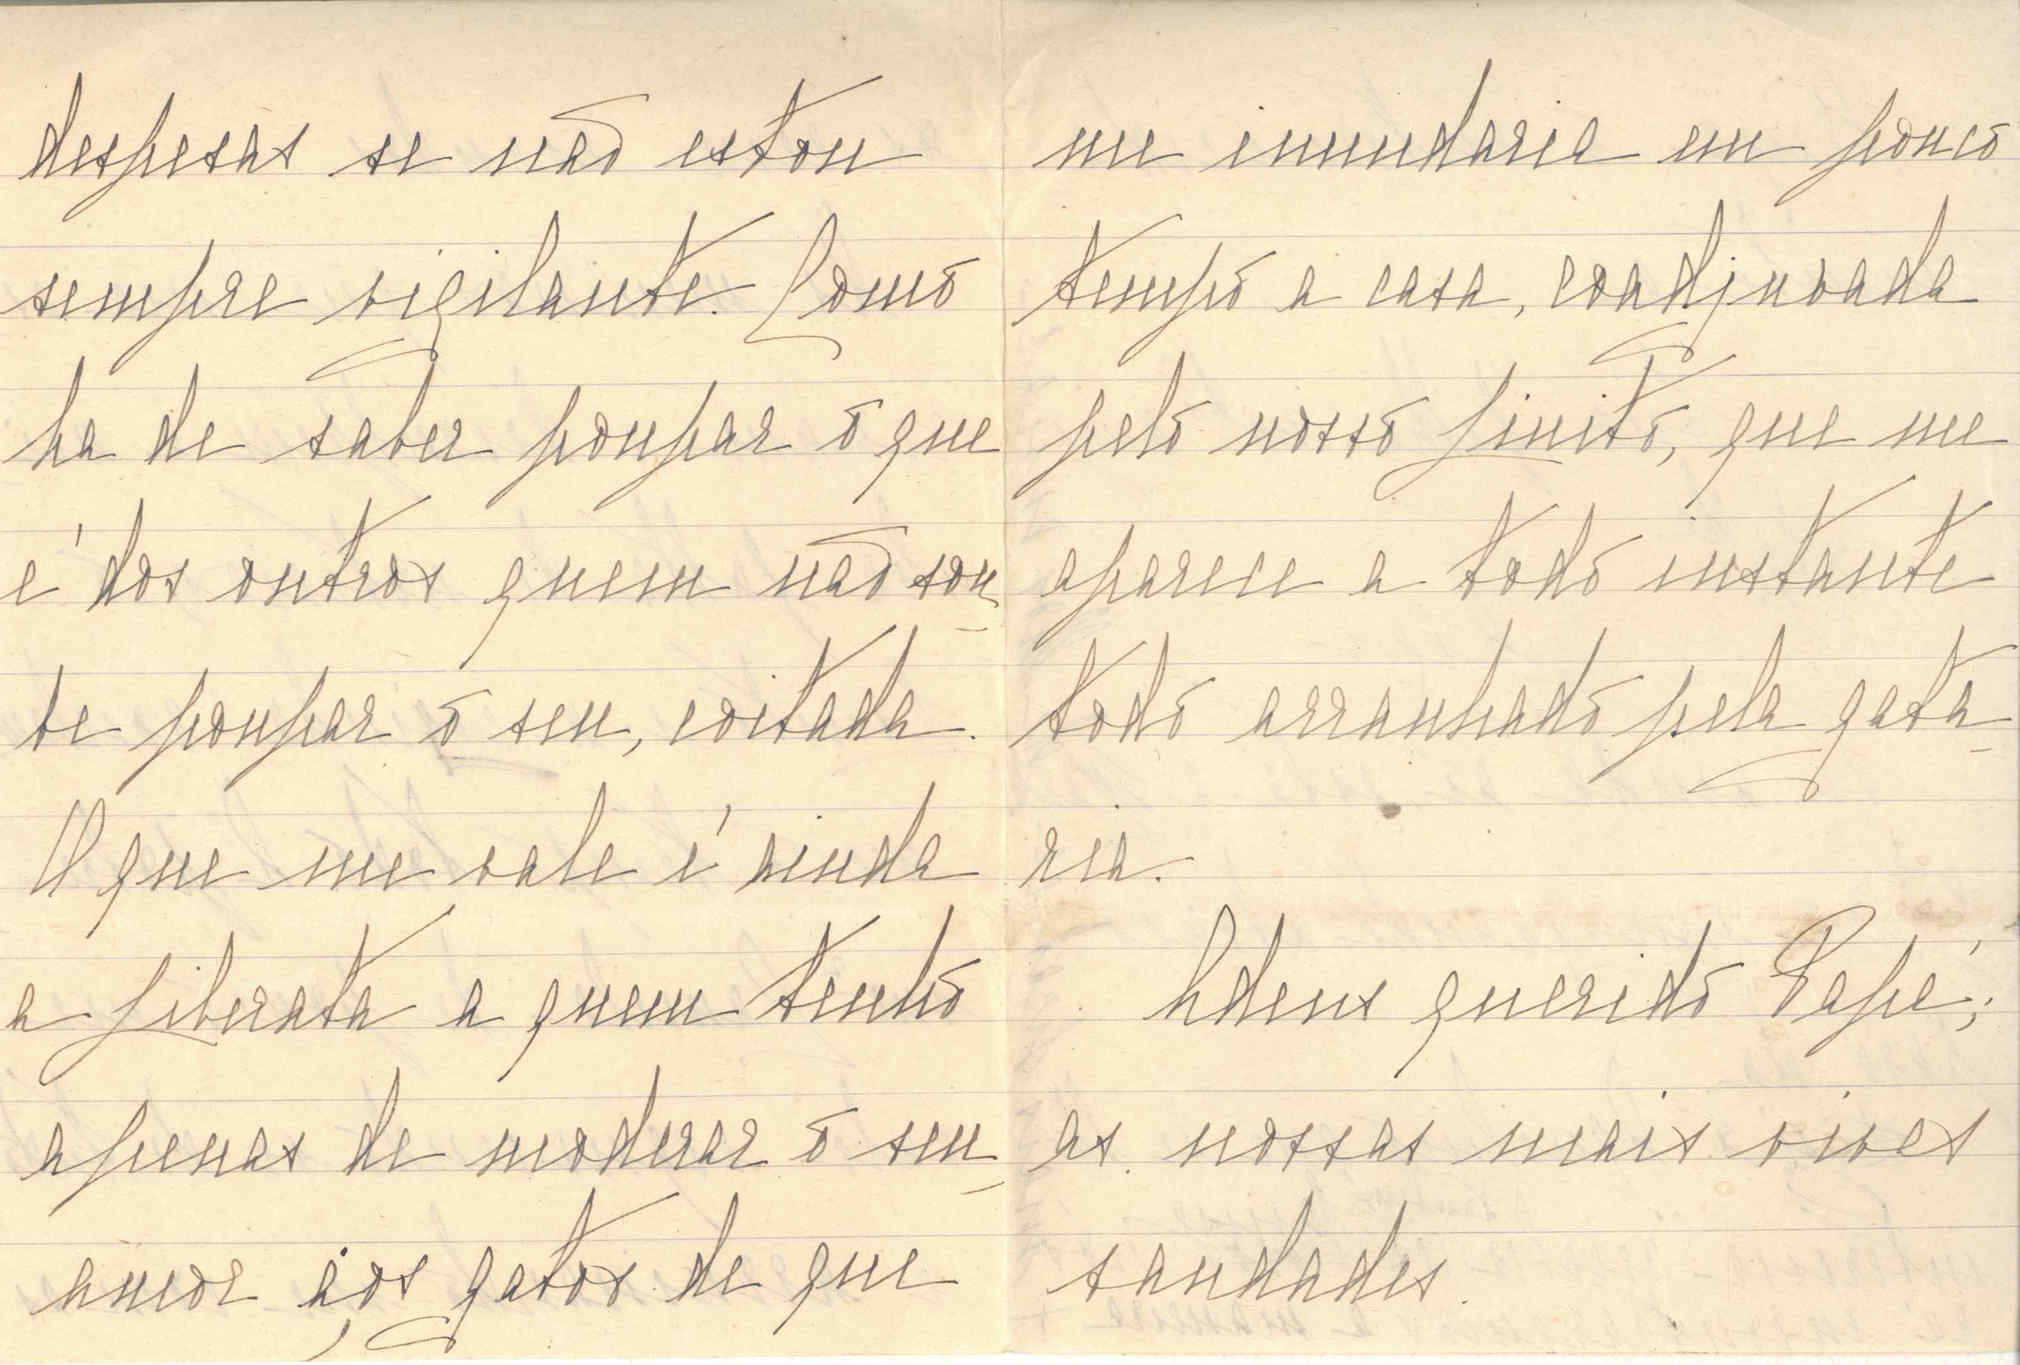 despesas se não estou
sempre vigilante. Como
ha de saber poupar o que
é dos outros quem não sou
be poupar o seu, coitada.
O que me vale é ainda
a Liberata a quem tenho
apenas de moderar o seu
amor aos gatos de que
me inundaria em pouco
tempo a casa, coadjuvada
pelo nosso Linito, que me
aparece a todo instante
todo arranhado pela gata-
ria.
Adeus querido Papé;
as nossas mais vivas
saudades.